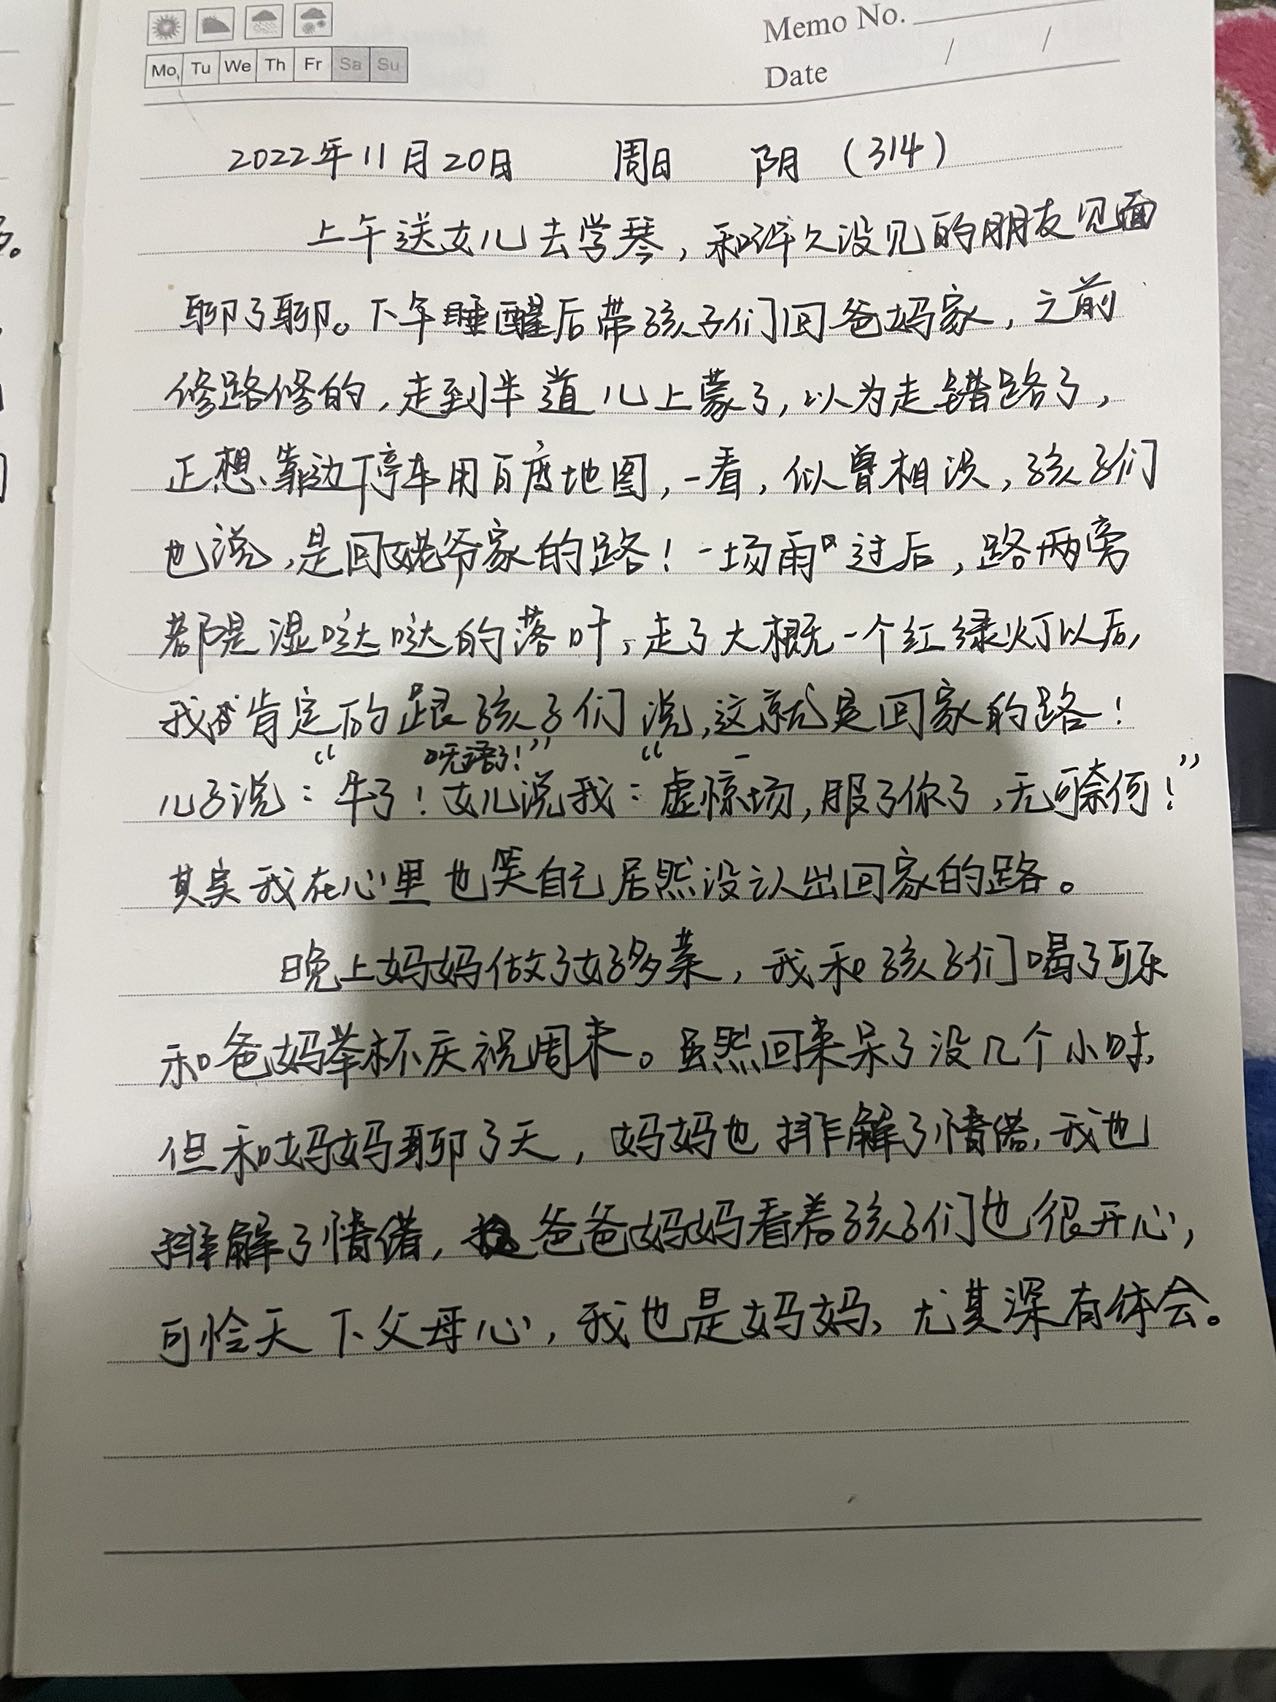 Memo No.
Mo Tu We Th Fr Sa Su
Date / /
2022年11月20日 周日 阴 (314)
上午送女儿去学琴,和许久没见的朋友见面
聊了聊。下午睡醒后带孩子们回爸妈家,之前
修路修的,走到半道儿上蒙了,以为走错路了,
正想靠边停车用百度地图,一看,似曾相识,孩子们
也说,是回姥爷家的路!一场雨过后,路两旁
都是湿哒哒的落叶,走了大概一个红绿灯以后,
我才肯定的跟孩子们说,这就是回家的路!
儿子说:“牛了!无语了!”女儿说我:“虚惊一场,服了你了,无可奈何!”
其实我在心里也笑自己居然没认出回家的路。
晚上妈妈做了好多菜,我和孩子们喝了可乐
和爸妈举杯庆祝周末。虽然回来呆了没几个小时,
但和妈妈聊了天,妈妈也排解了情绪,我也
排解了情绪,爸爸妈妈看着孩子们也很开心,
可怜天下父母心,我也是妈妈,尤其深有体会。